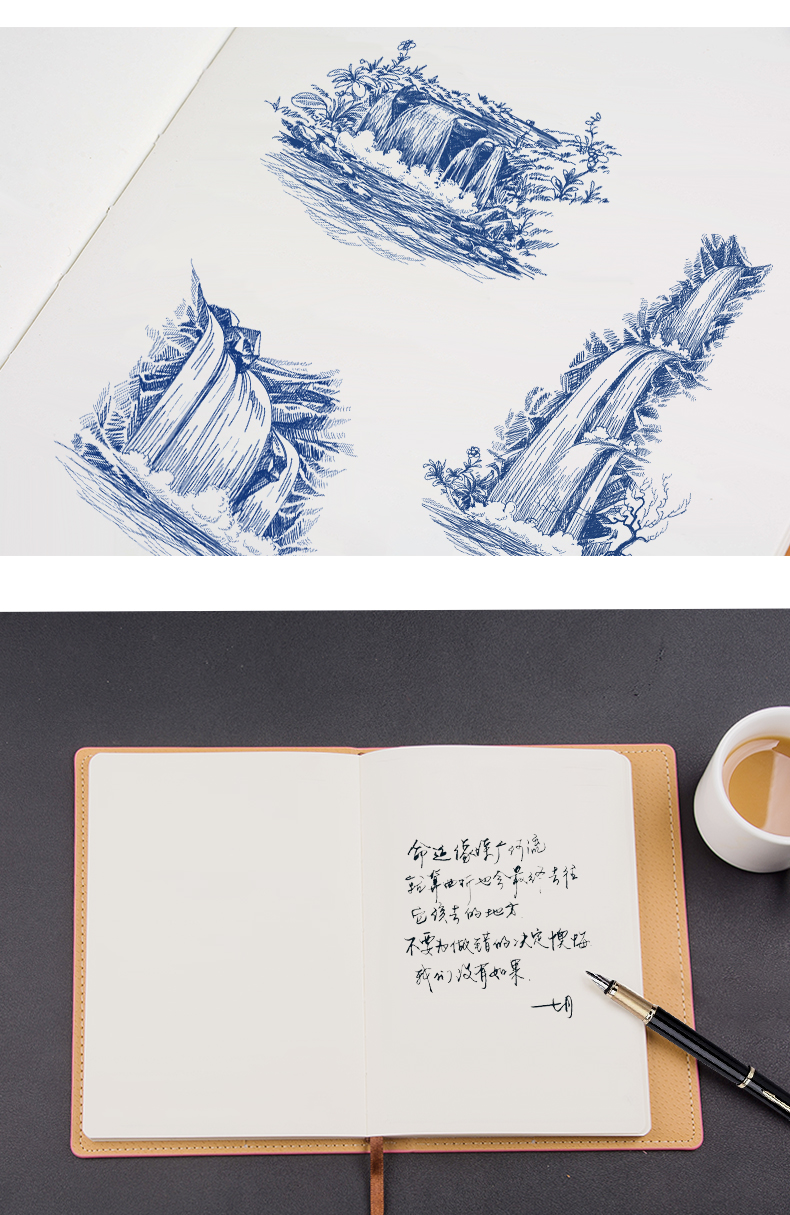 命运像条河流
就算曲折也会最终去往
应该去的地方
不要为做错的决定懊悔
我们没有如果.
—七月